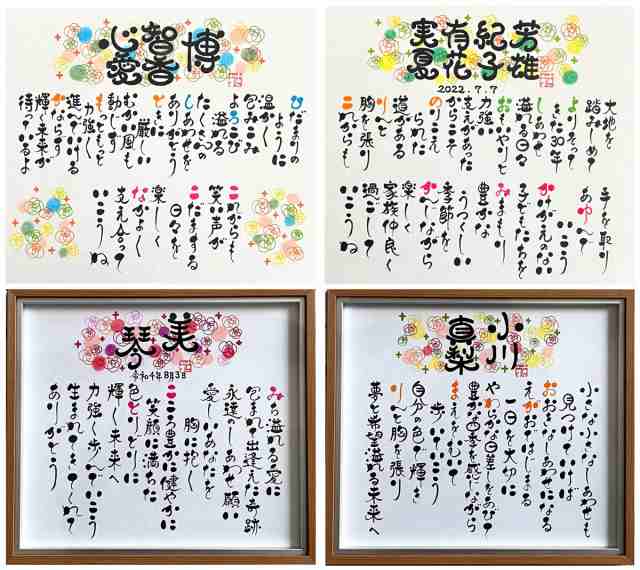 博
智香
心愛
ひだまりの
ように
温かく
包みこみ
よろこび
溢れる
たくさんの
しあわせを
ありがとう
ときに
厳しい
むかい風も
動じず
もっともっと
力強く
かならず
進んでいる
輝く未来が
待っているよ
これからも
笑い声が
こだまする
日々を
楽しく
なかよく
支え合って
いこうね
芳雄
紀子
有花
実夏
2022.7.7
大地を
踏みしめて
よりそって
きた30年
しあわせ
溢れる日々
おもいやりと
力強い
支えがあった
からこそ
のりこえ
られた
道がある
りんと
胸を張り
これからも
手を取り
あゆんで
いこう
かけがえのない
子どもたちを
みまもり
豊かな
うつくしい
季節を
かんじながら
楽しく
家族仲良く
過ごして
いこうね
美琴
令和4年8月3日
みち溢れる愛に
包まれ出逢えた奇跡
永遠のしあわせ願い
愛しいあなたを
胸に抱く
こころ豊かに健やかに
笑顔に満ちた
色とりどりに
輝く未来へ
力強く歩んでいこう
生まれてきてくれて
ありがとう
小川
真梨
小さな小さなしあわせも
見つけていけば
おおきなしあわせになる
えがおではじまる
一日を大切に
やわらかな日差しをあびて
豊かな四季を感じながら
まえをむいて
歩いていこう
自分の色で輝き
りんと胸を張り
夢と希望溢れる未来へ